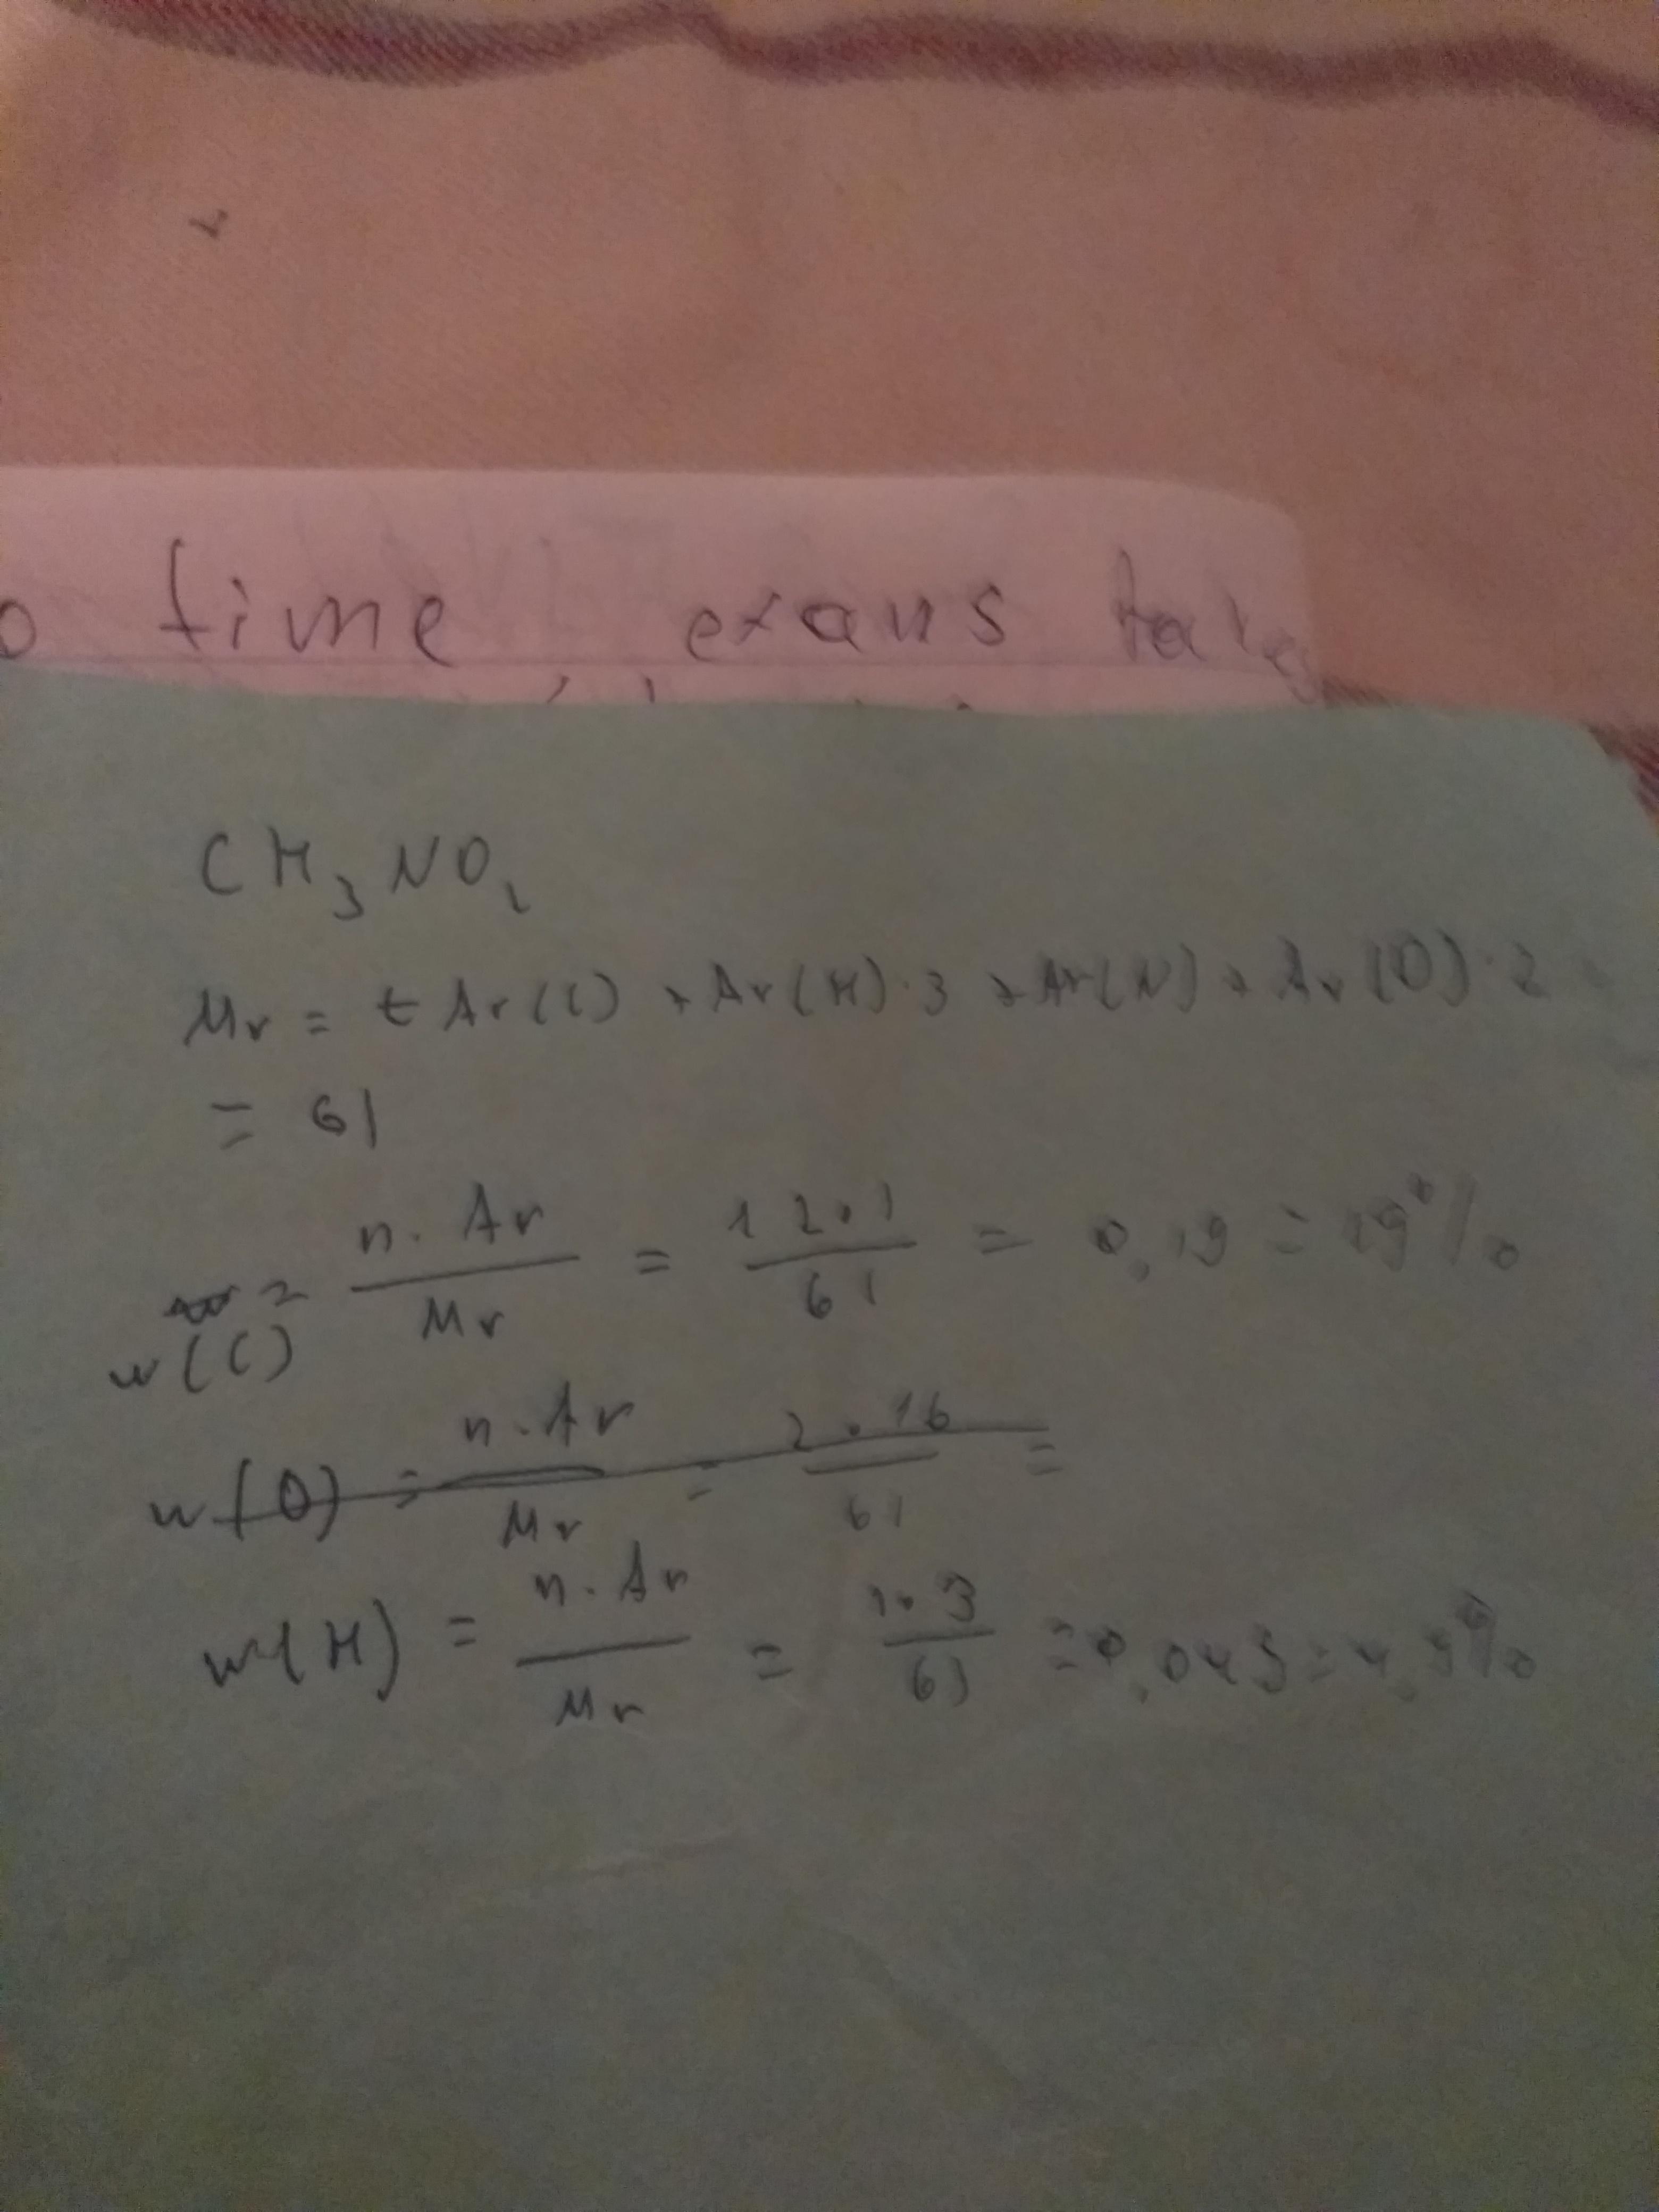 o time, exams take
CH3NO2
Mr = Ar(C) + Ar(H)·3 + Ar(N) + Ar(O)·2
= 61
w(C) = n·Ar/Mr = 12·1/61 = 0,19 = 19%
w(O) = n·Ar/Mr = 2·16/61 =
w(H) = n·Ar/Mr = 1·3/61 =